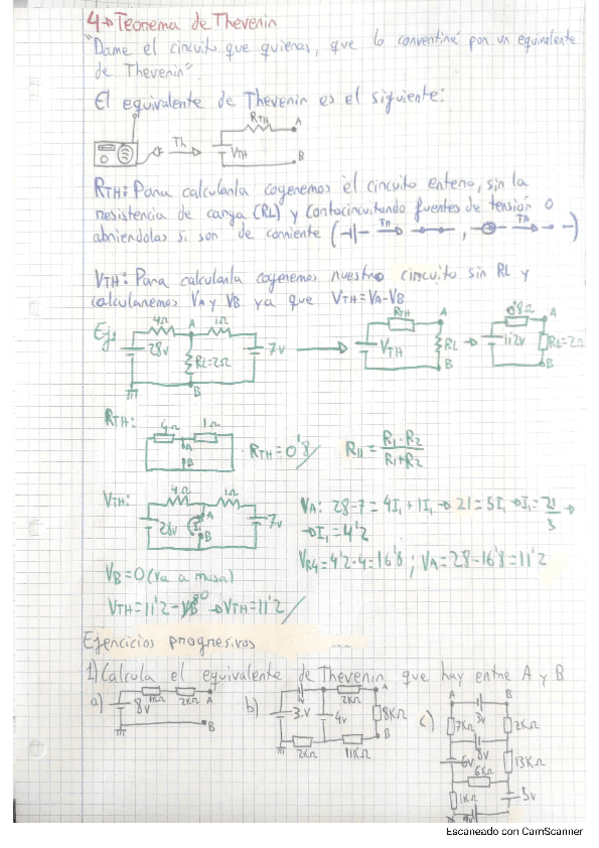 4→Teorema de Thevenin
"Dame el circuito que quieras, que lo convertiré por un equivalente
de Thevenin".
El equivalente de Thevenin es el siguiente:
Th RTH A
VTH B
RTH: Para calcularla cogeremos el circuito entero, sin la
resistencia de carga (RL) y contocircuitando fuentes de tensión o
abriendolas si son de corriente ( TH , TH )
VTH: Para calcularla cogeremos nuestro circuito sin RL y
calcularemos VA y VB ya que VTH=VA-VB
Ej: 4Ω A 1Ω RTH A 0'8Ω A
28v RL=2Ω 7v VTH RL 11'2v RL=2Ω
B B B
RTH:
4Ω 1Ω
A
B
RTH=0'8/ R11 = R1·R2
R1+R2
VTH: 4Ω 1Ω
28v A B 7v
VA: 28-7=4I1+1I1→21=5I1→I1=21/5→
→I1=4'2
VR4=4'2·4=16'8; VA=28-16'8=11'2
VB=0 (va a masa)
VTH=11'2-VB 0→VTH=11'2/
Ejercicios progresivos
1)Calcula el equivalente de Thevenin que hay entre A y B
a) 8v 1KΩ 2KΩ A B
b) 3v 4v 2KΩ A 8KΩ B 2KΩ 11KΩ
c) A B 7KΩ 3v 2KΩ 8v 6v 6KΩ 13KΩ 1KΩ 5v 9v
Escaneado con CamScanner